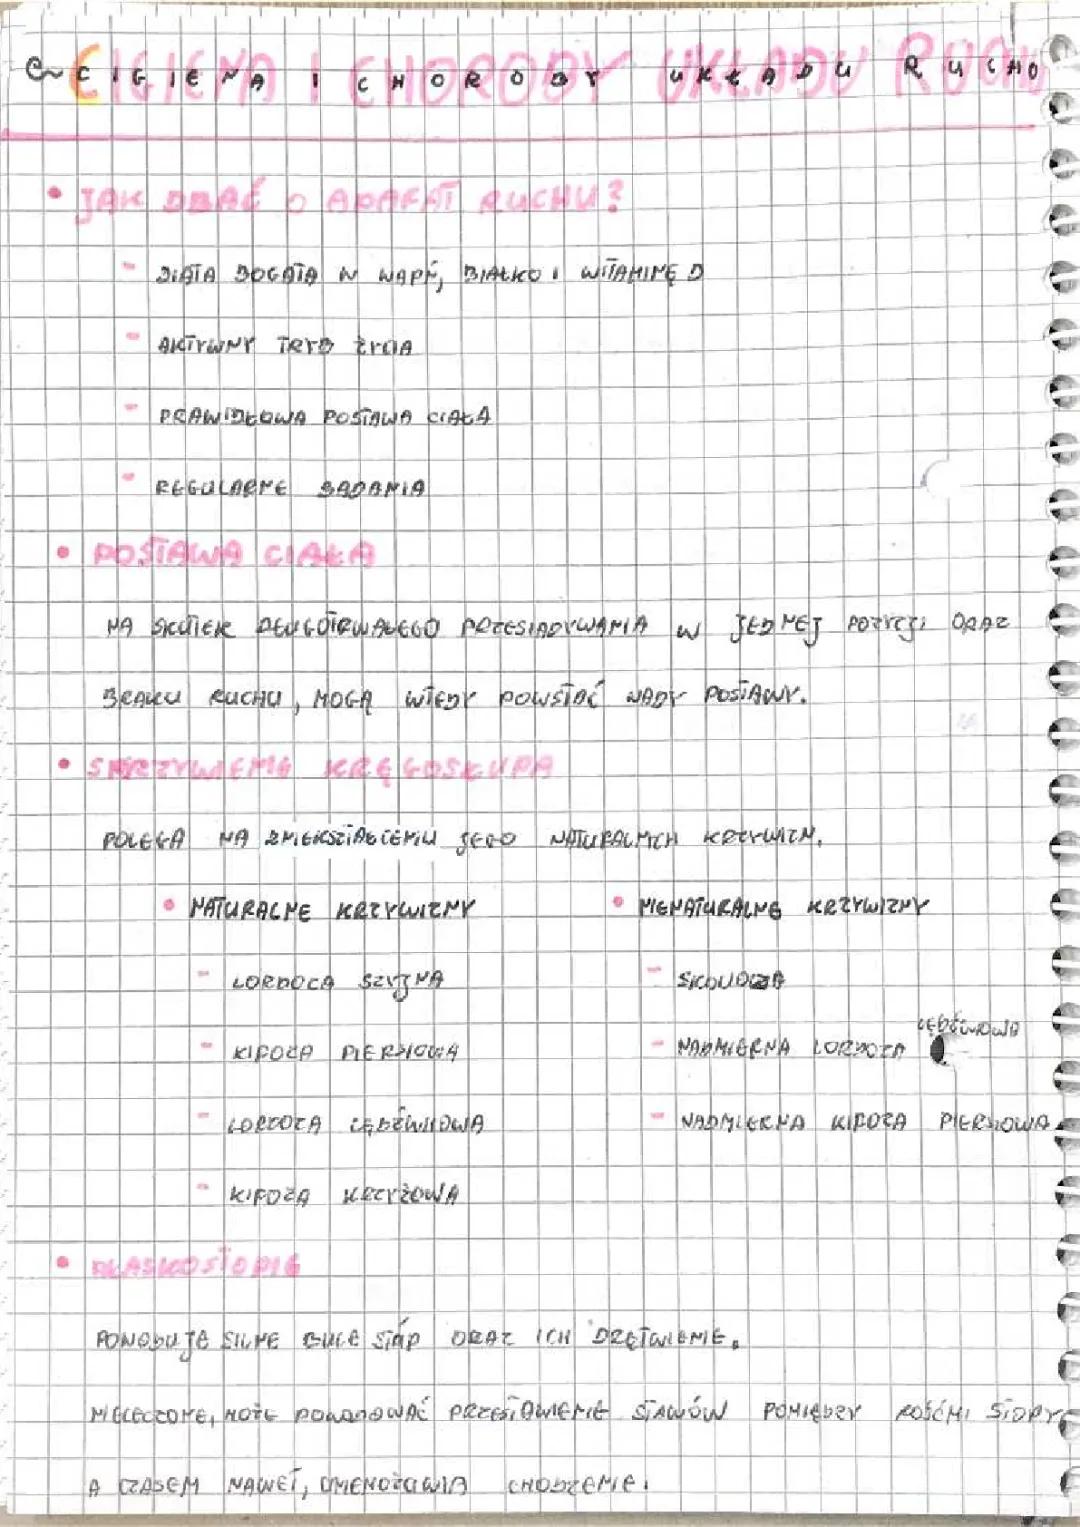 HIGIENA I CHOROBY UKŁADU RUCHU
• JAK DBAĆ O APARAT RUCHU?
- DIETA BOGATA W WAPŃ, BIAŁKO I WITAMINĘ D
- AKTYWNY TRYB ŻYCIA
- PRAWIDŁOWA POSTAWA CIAŁA
- REGULARNE BADANIA
• POSTAWA CIAŁA
NA SKUTEK DŁUGOTRWAŁEGO PRZESIADYWANIA W JEDNEJ POZYCJI ORAZ
BRAKU RUCHU, MOGĄ WTEDY POWSTAĆ WADY POSTAWY.
• SKRZYWIENIE KRĘGOSŁUPA
POLEGA NA ZNIEKSZTAŁCENIU JEGO NATURALNYCH KRZYWIZN.
• NATURALNE KRZYWIZNY
• NIENATURALNE KRZYWIZNY
- LORDOZA SZYJNA
- SKOLIOZA
- KIFOZA PIERSIOWA
- NADMIERNA LORDOZA LĘDŹWIOWA
- LORDOZA LĘDŹWIOWA
- NADMIERNA KIFOZA PIERSIOWA
- KIFOZA KRZYŻOWA
• PŁASKOSTOPIE
POWODUJE SILNE BÓLE STÓP ORAZ ICH DRĘTWIENIE.
NIELECZONE, MOŻE POWODOWAĆ PRZESTAWIENIE STAWÓW POMIĘDZY KOŚĆMI STOPY
A CZASEM NAWET, UNIEMOŻLIWIA CHODZENIE.